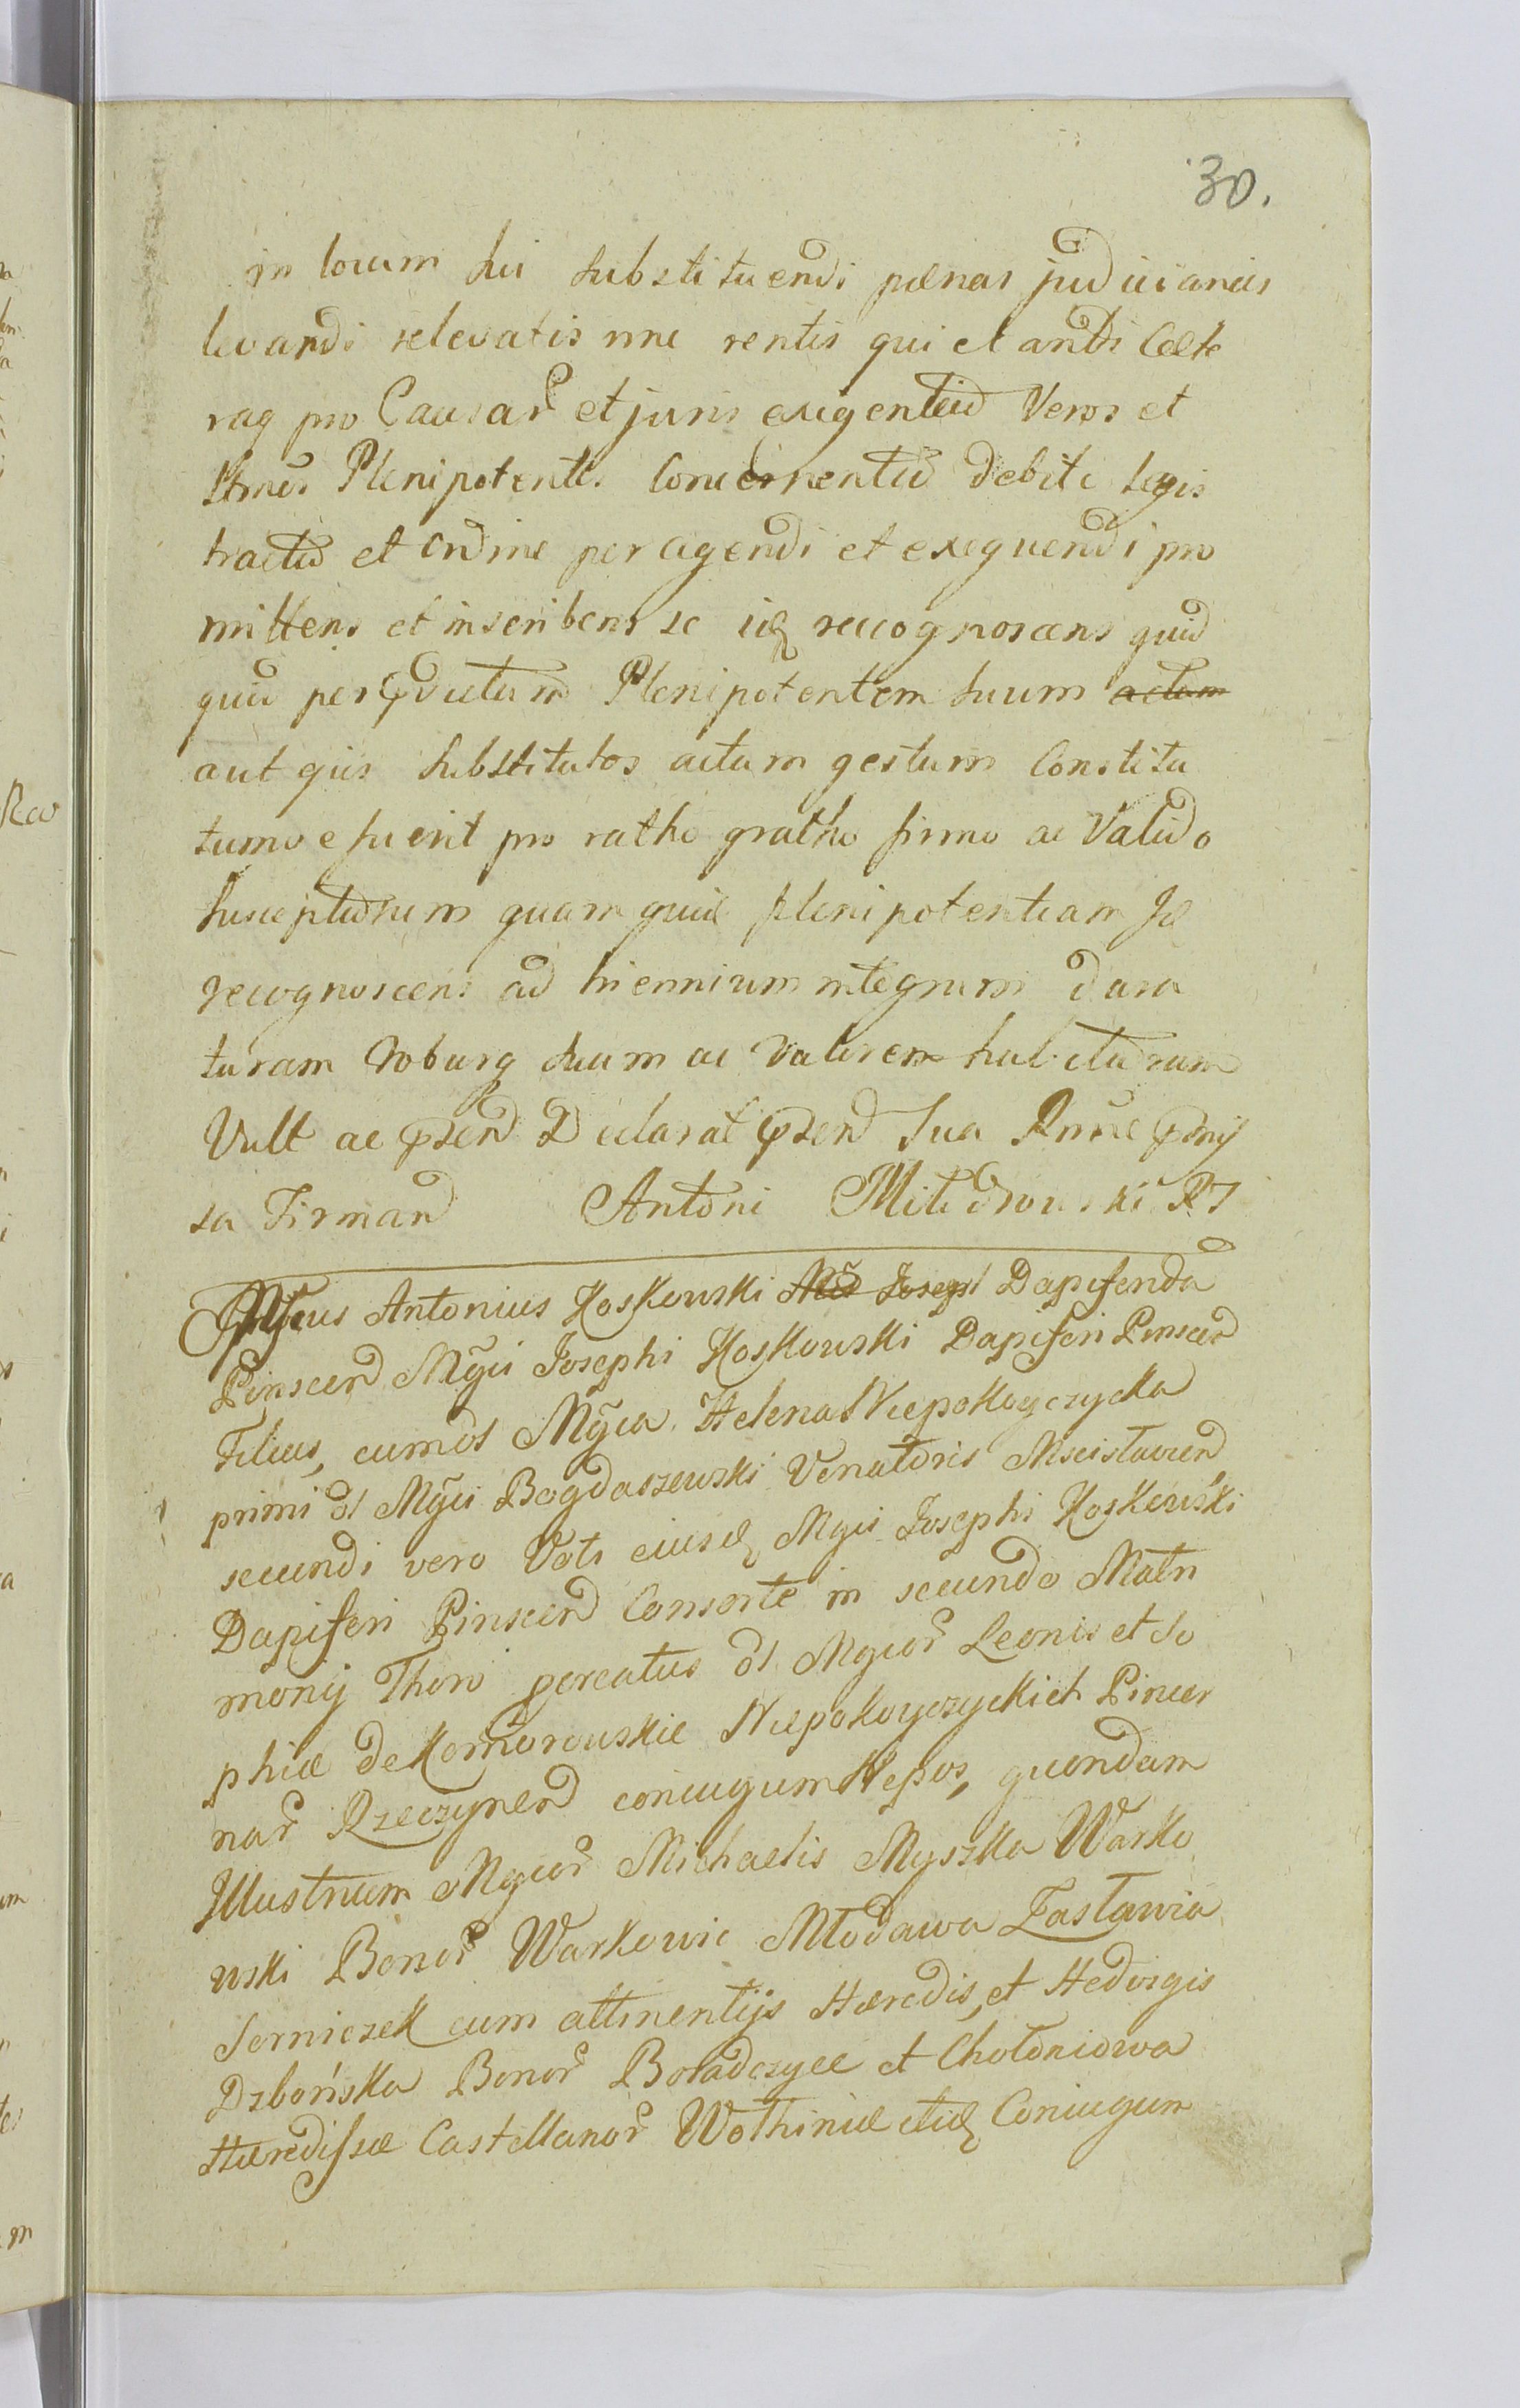 30.
in locum sui substituendi pænas judiciarias
levandi relevatis nne rentis qui etandi Cæte
raq pro Causar et juris exigentia Veros et
Plenipotentes Concernentia debite legis
tractu et ordine peragendi et exequendi pro
mittens et inscribens se idq recognoscens quid
quid per Plenipotentem suum actum
aut ejus substitutos actum gestum Constitu
tumve fuerit pro ratho gratho firmo ac Valido
suscepturum quam quid plenipotentiam Id
recognoscens ad triennium integrum dura
turam Roburq suum ac valorem habituram
Vult ac pzen Declarat pzen Sua Rmne
sa Firman Antoni Mitarowski RJ
Mfcus Antonius Koskowski Josep Dapiferida
Pinscen Mgci Josephi Koskowski Dapiferi Pinscen
Filius, cum ol Mgca Helena Niepokoyczycka
primi ol Mgci Bogdaszewski Venatoris Mscislavien
secundi vero Voti eiusd Mgci Josephi Koskowski
Dapiferi Pinscen Consorte in secundo Matri
monij Thoro percatus ol Mgcor Leonis et So
phiæ de Komorowskie Niepokoyczyckich Pincer
nar Rzeczycen coniugum Nepos, quondam
Illustrium Mgcor Michaelis Myszka Warko
wski Bonor Warkowic Młodawa Zasławia
Serniczek cum attinentijs Hæredis, et Hedvigis
Dzbońska Bonor Boładczyce et Chołoniowa
Hæredissæ Castellanor Wołhiniæ etid Coniugum